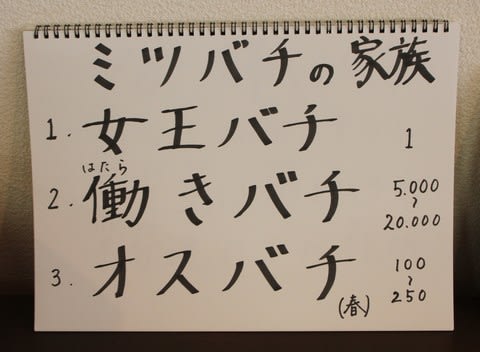 ミツバチの家族
1. 女王バチ 1
はたら
2. 働きバチ 5.000
~
20.000
3. オスバチ 100
~
(春) 250